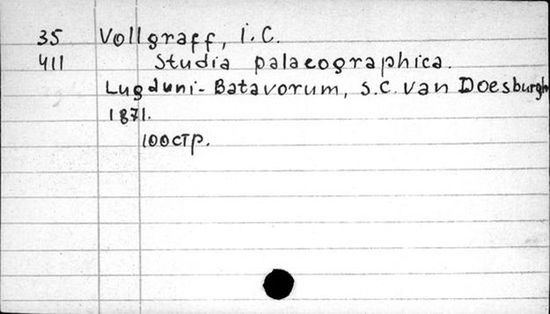 35 Vollgraff, I.C.
411 Studia palaeographica.
Lugduni-Batavorum, S.C. van Doesburgh
1871.
100стр.